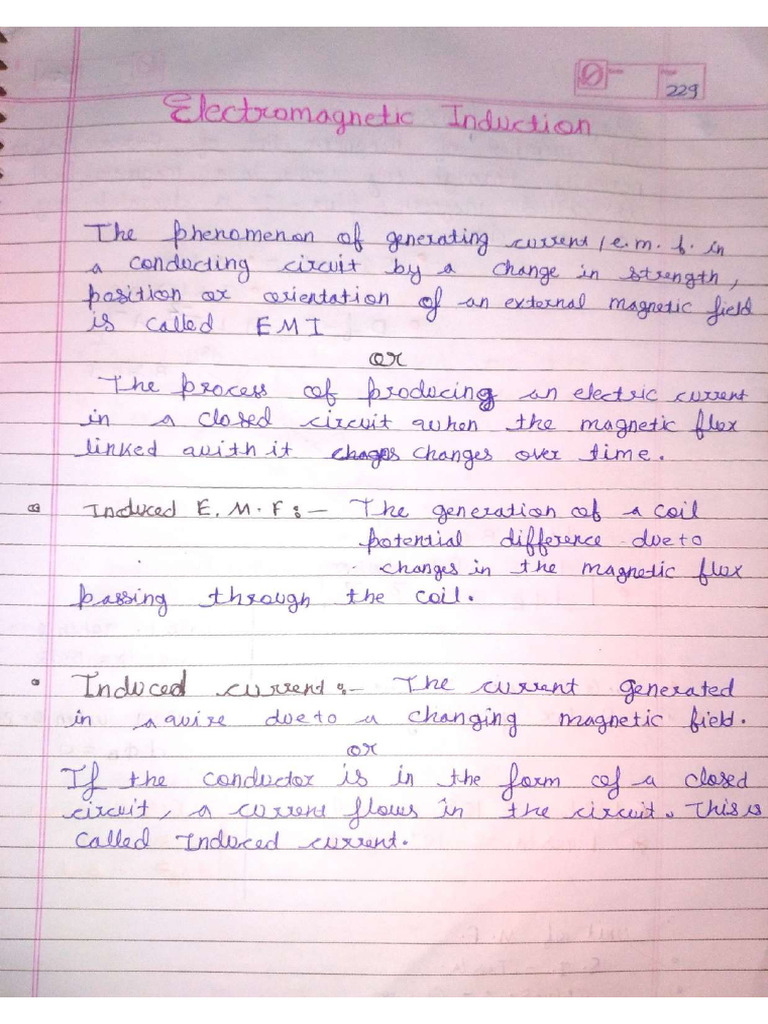 229
Electromagnetic Induction
The phenomenon of generating current/e.m.f. in
a conducting circuit by a change in strength,
position or orientation of an external magnetic field
is called EMI
or
The process of producing an electric current
in a closed circuit when the magnetic flux
linked with it changes over time.
Induced E.M.F:- The generation of a coil
potential difference due to
changes in the magnetic flux
passing through the coil.
Induced current:- The current generated
in a wire due to a changing magnetic field.
or
If the conductor is in the form of a closed
circuit, a current flows in the circuit. This is
called Induced current.